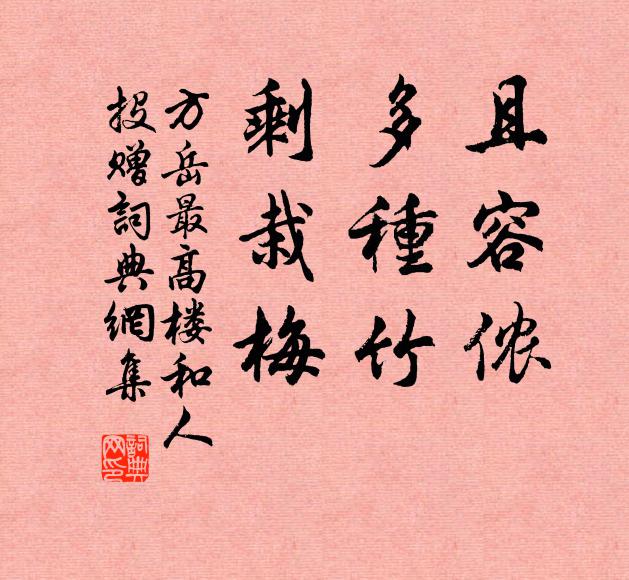 且容侬
多種竹
剩栽梅
方岳最高楼和人
投赠詞典網集
詞典网印